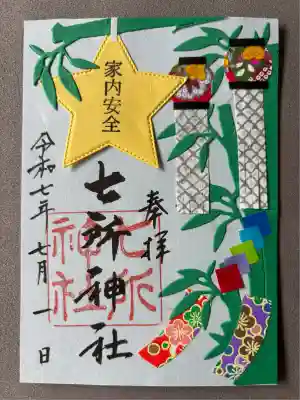 家内安全
奉拝
七所神社
七所
神社
令和七年七月一日